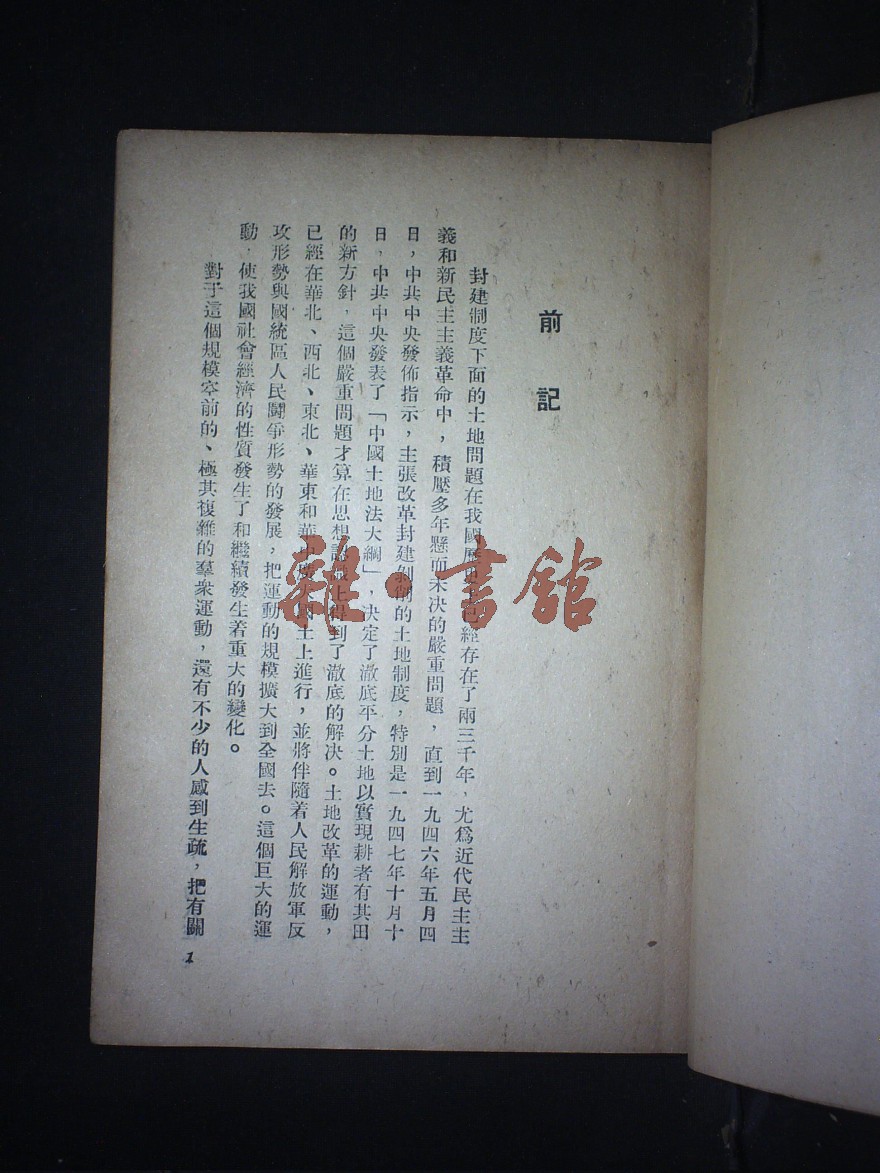 前記
封建制度下面的土地問題在我國歷史已經存在了兩三千年，尤爲近代民主主
義和新民主主義革命中，積壓多年懸而未决的嚴重問題，直到一九四六年五月四
日，中共中央發佈指示，主張改革封建剝削的土地制度，特別是一九四七年十月十
日，中共中央發表了「中國土地法大綱」，决定了澈底平分土地以實現耕者有其田
的新方針，這個嚴重問題才算在思想上得到了澈底的解决。土地改革的運動，
已經在華北、西北、東北、華東和華國土上進行，並將伴隨着人民解放軍反
攻形勢與國統區人民鬪爭形勢的發展，把運動的規模擴大到全國去。這個巨大的運
動，使我國社會經濟的性質發生了和繼續發生着重大的變化。
對于這個規模空前的、極其複雜的羣衆運動，還有不少的人感到生疏，把有關
1
雜·書館